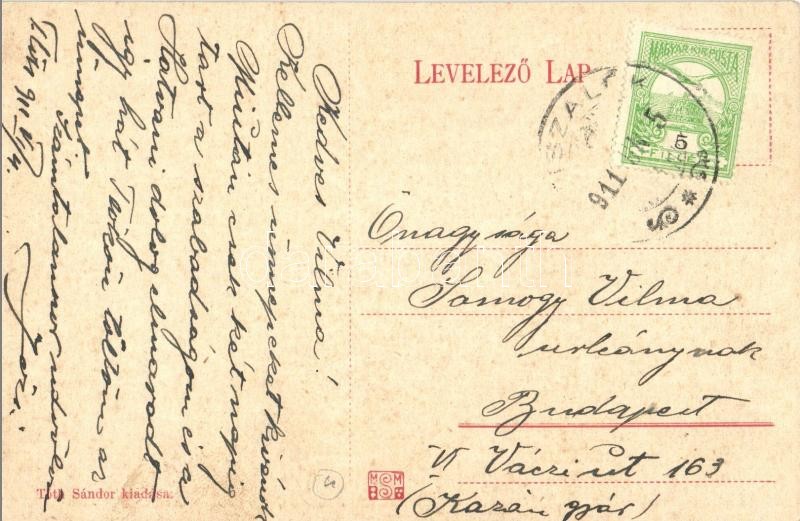 LEVELEZŐ LAP
MAGYAR KIR. POSTA
5
FILLÉR
911
Kedves Vilma!
Kellemes ünnepeket kivánok
Miután csak két napig
tart a szabadságom és a
Hatvani dolog elmaradt
így hát Tescőn töltöm az
ünnepet
Számtalanszor üdvözlim
Önagysága
Somogy Vilma
urleánynak
Budapest
VI Váczi ut 163
(Kazán gyár)
Tóth Sándor kiadása.
MSM